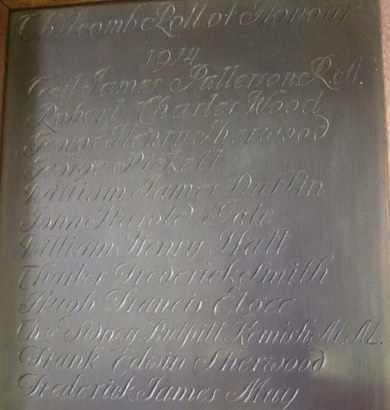 Chilcomb Roll of Honour
1914
Cecil James Patterson R.N.
Robert Charles Wood
George Henry Sherwood
George
William James Duffin
John Harold Gale
William Henry Hall
Charles Frederick Smith
Hugh Francis
Chas Sidney Pulpitt Kemish M.M.
Frank Edwin Sherwood
Frederick James May